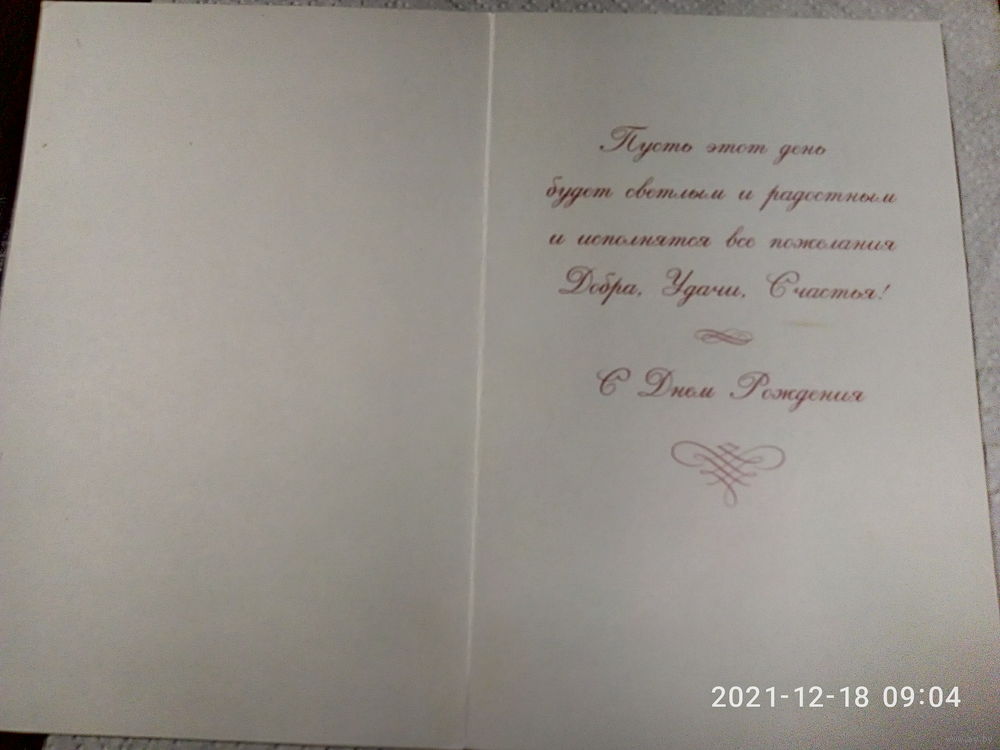 Пусть этот день
будет светлым и радостным
и исполнятся все пожелания
Добра, Удачи, Счастья!
С Днем Рождения
2021-12-18 09:04